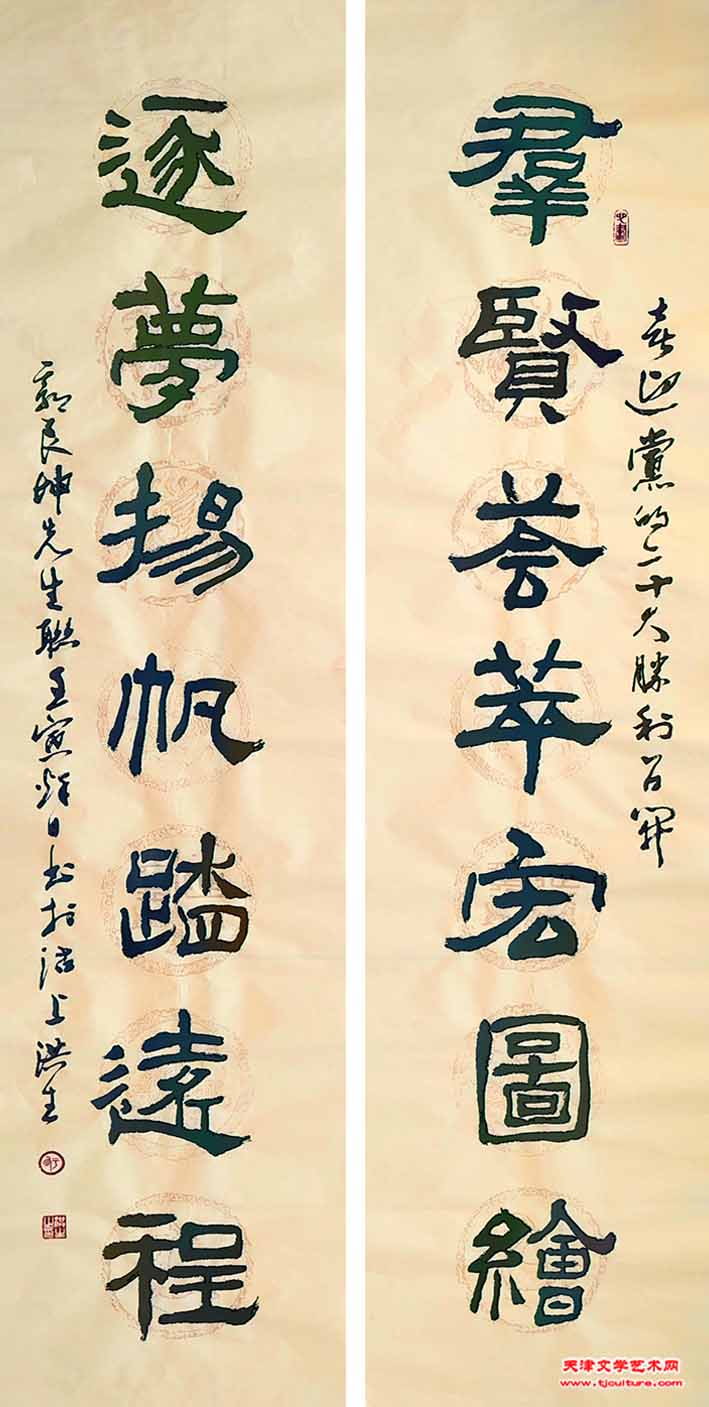 喜迎黨的二十大勝利召開
羣賢薈萃宏圖繪
逐夢揚帆踏遠程
郭良坤先生聯壬寅年日书於沽上洪生
天津文学艺术网
www.tjculture.com